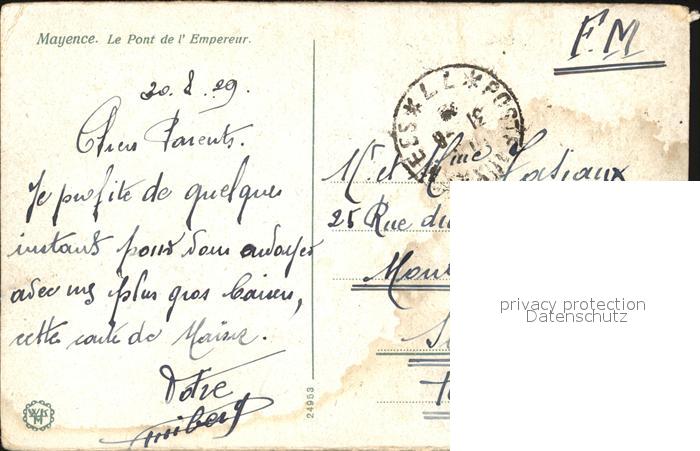 Mayence. Le Pont de l' Empereur.
20. 8. 29.
Chers Parents.
Je profite de quelques
instants pour vous envoyer
avec mes plus gros baisers,
cette carte de Maïence.
Votre
F.M
Mr. et Mme
25 Rue du
24953
privacy protection
Datenschutz